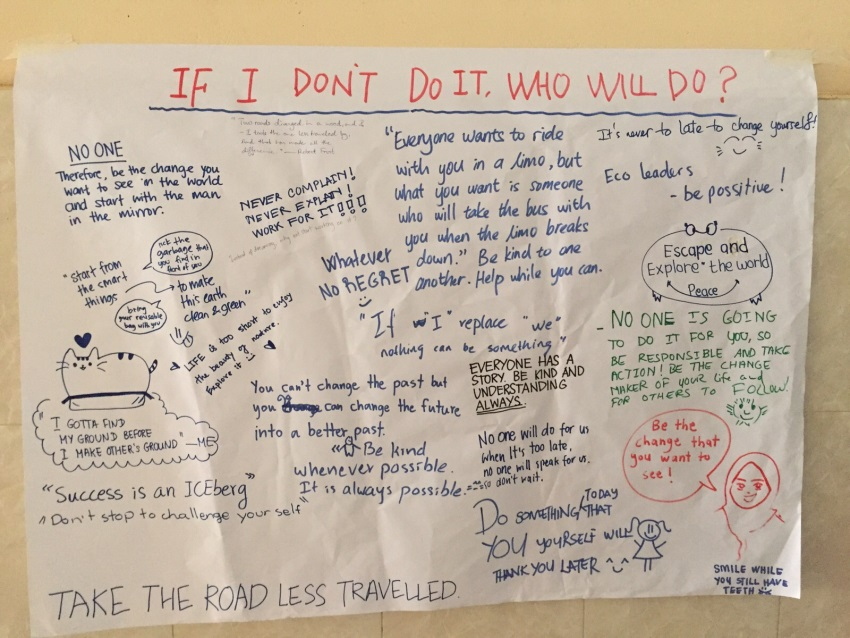 IF I DON'T DO IT, WHO WILL DO?
NO ONE
Therefore, be the change you
want to see in the world
and start with the man
in the mirror.
"Two roads diverged in a wood and I
- I took the one less travelled by,
And that has made all the
difference."
NEVER COMPLAIN!
NEVER EXPLAIN!
WORK FOR IT!!!
"Everyone wants to ride
with you in a limo, but
what you want is someone
who will take the bus with
you when the limo breaks
down." Be kind to one
another. Help while you can.
It's never to late to change yourself!
Eco leaders
- be possitive!
Escape and
Explore the world
Peace
"start from
the smart
things
pick the
garbage that
you find in
front of you
bring
your reusable
bag with you
to make
this earth
clean & green"
Whatever
NO REGRET
LIFE is too short to enjoy
the beauty of nature.
Explore it
"If "I" replace "we"
nothing can be something"
EVERYONE HAS A
STORY. BE KIND AND
UNDERSTANDING
ALWAYS.
- NO ONE IS GOING
TO DO IT FOR YOU, SO
BE RESPONSIBLE AND TAKE
ACTION! BE THE CHANGE
MAKER OF YOUR life and
FOR OTHERS TO FOLLOW.
"I GOTTA FIND
MY GROUND BEFORE
I MAKE OTHER'S GROUND" -ME
You can't change the past but
you can change the future
into a better past.
"Be kind
whenever possible.
It is always possible.
No one will do for us
when It's too late,
no one will speak for us.
so don't wait.
Be the
change that
you want to
see!
"Success is an ICEberg"
Don't stop to challenge your self"
DO SOMETHING TODAY THAT
YOU YOURSELF WILL
THANK YOU LATER
SMILE WHILE
YOU STILL HAVE
TEETH
TAKE THE ROAD LESS TRAVELLED.